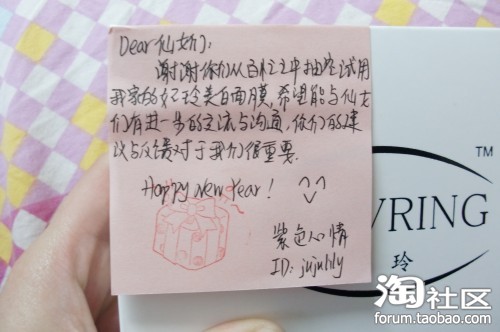 Dear仙女们:
谢谢你们从百忙之中抽空试用
我家的妃玲美白面膜,希望能与仙女
们有进一步的交流与沟通,你们的建
议与反馈对于我们很重要.
Happy new Year!
紫色心情
ID: jujulily
VRING
TM
玲
淘社区
forum.taobao.com